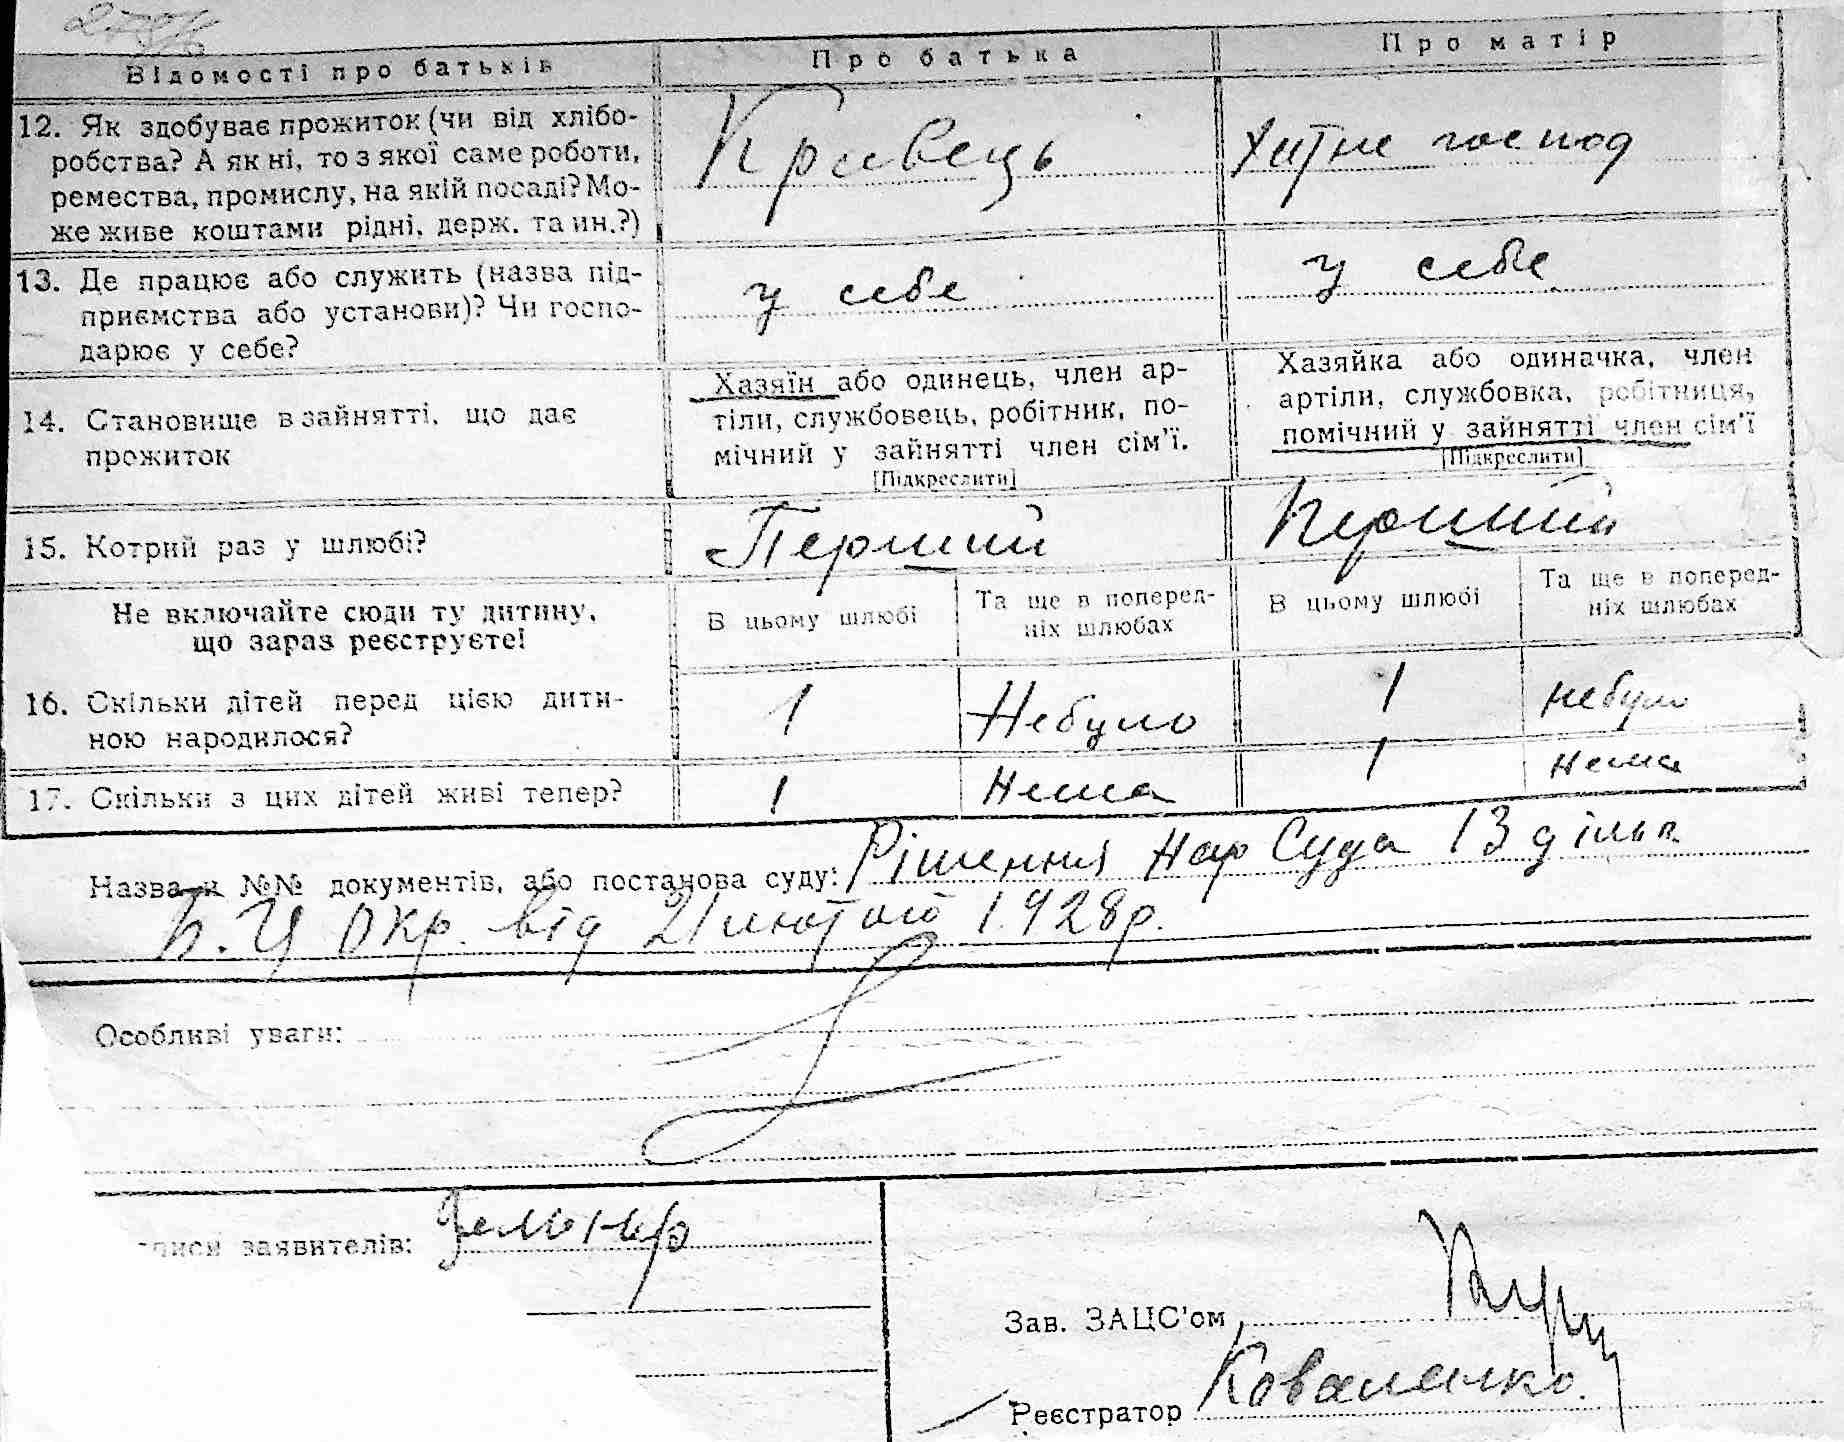 Відомості про батьків
Про батька
Про матір
12. Як здобуває прожиток (чи від хлібо-
робства? А як ні, то з якої саме роботи,
ремества, промислу, на якій посаді? Мо-
же живе коштами рідні, держ. та ин.?)
Кравець
Хатне господ
13. Де працює або служить (назва під-
приємства або установи)? Чи госпо-
дарює у себе?
у себе
у себе
14. Становище в зайнятті, що дає
прожиток
Хазяїн або одинець, член ар-
тіли, службовець, робітник, по-
мічний у зайнятті член сім'ї.
[Підкреслити]
Хазяйка або одиначка, член
артіли, службовка, робітниця,
помічний у зайнятті член сім'ї
[Підкреслити]
15. Котрий раз у шлюбі?
Перший
Перший
Не включайте сюди ту дитину,
що зараз реєструєте!
В цьому шлюбі
Та ще в поперед-
ніх шлюбах
В цьому шлюбі
Та ще в поперед-
ніх шлюбах
16. Скільки дітей перед цією дити-
ною народилося?
1
Небуло
1
небуло
17. Скільки з цих дітей живі тепер?
1
Нема
1
нема
Назва и №№ документів, або постанова суду: Рішення Нар Суда 13 дільн
Б.Ц Окр. від 21 лютого 1928р.
Особливі уваги:
писи заявителів:
Зав. ЗАЦС'ом
Реєстратор Коваленко.